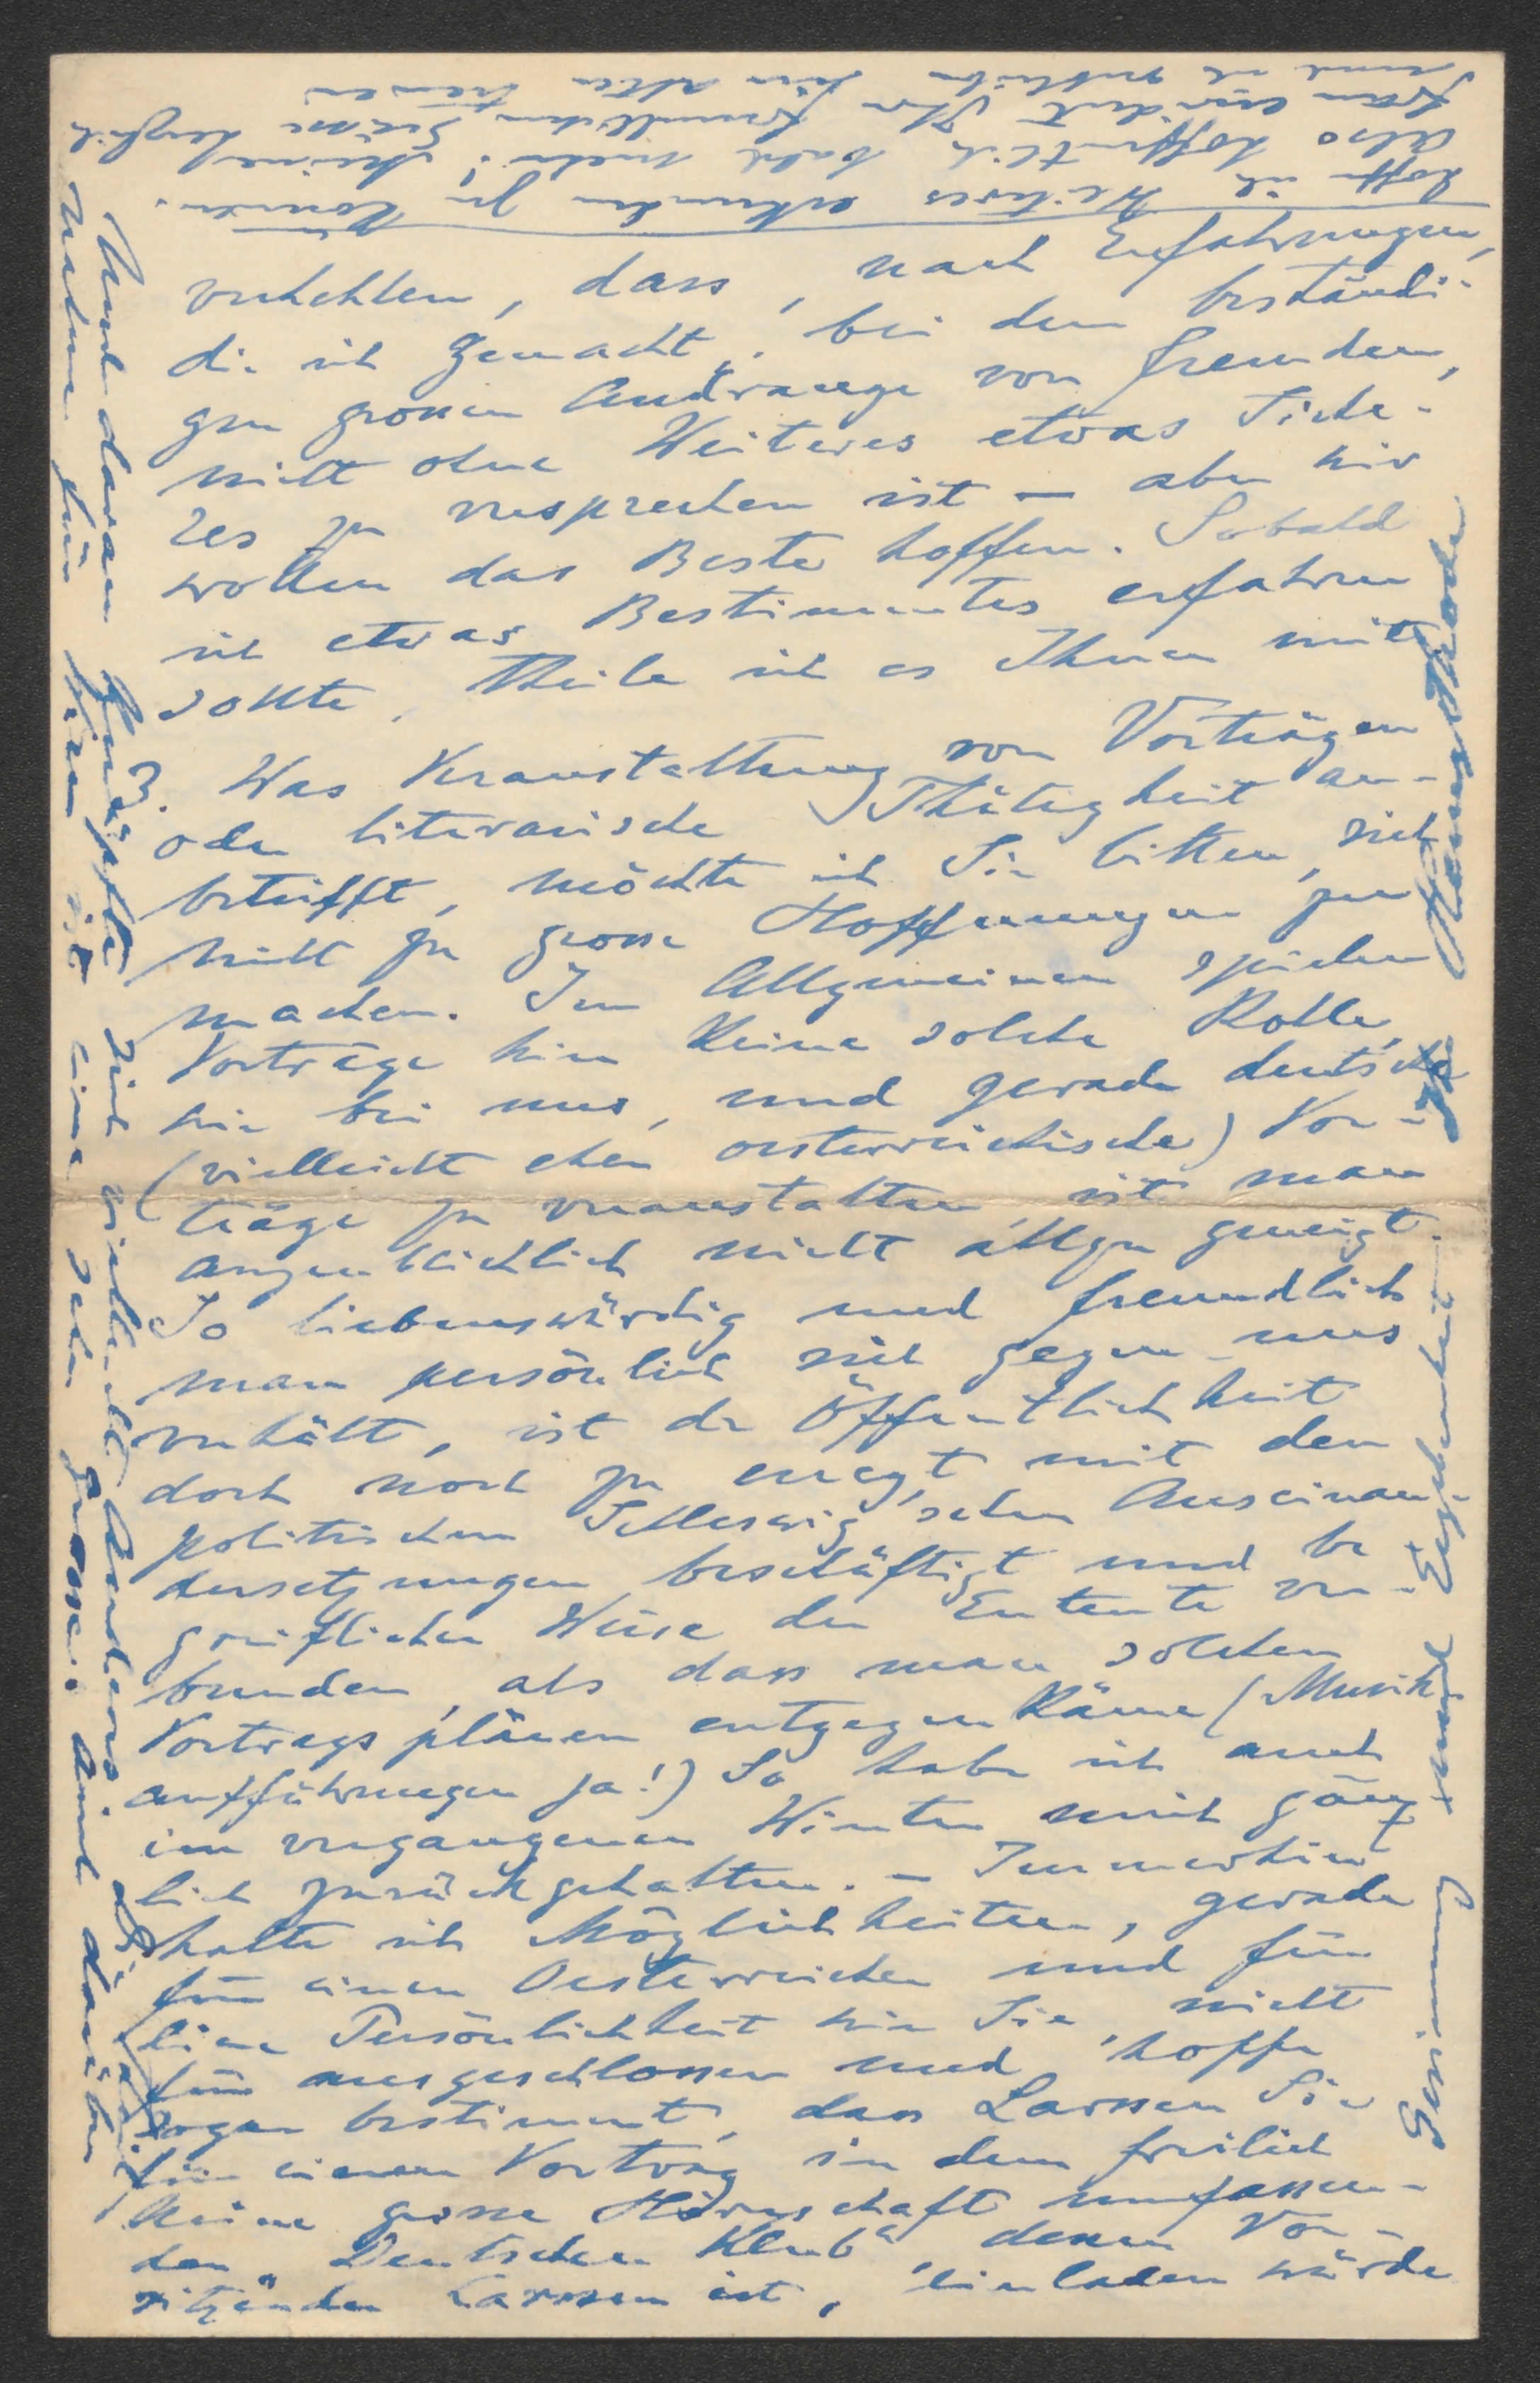 verhehlen, dass, nach Erfahrungen,
die ich gemacht, bei dem beständi-
gen grossen Andrange von Fremden,
nicht ohne Weiteres etwas Siche-
res zu versprechen ist – aber wir
wollen das Beste hoffen. Sobald
ich etwas Bestimmtes erfahren
sollte, theile ich es Ihnen mit
3. Was Veranstaltung von Vorträgen
oder literarische Thätigkeit an-
betrifft, möchte ich Sie bitten, sich
nicht zu grosse Hoffnungen zu
machen. Im Allgemeinen spielen
Vorträge hier keine solche Rolle,
wie bei uns, und gerade deutsche
(vielleicht eher oesterreichische) Vor-
träge zu veranstalten ist man
augenblicklich nicht allzu geneigt.
So liebenswürdig und freundlich
man persönlich sich gegen uns
verhält, ist die Öffentlichkeit
doch noch zu erregt, mit den
politischen Schleswig'schen Auseinan-
dersetzungen beschäftigt und be
greiflicher Weise der Entente ver-
bunden, als dass man solchen
Vortragsplänen entgegen käme (Musik
aufführungen ja!) So habe ich auch
im vergangenen Winter mich gänz
lich zurückgehalten. – Immerhin
halte ich Möglichkeiten, gerade
für einen Oesterreicher und für
eine Persönlichkeit wie Sie, nicht
für ausgeschlossen und hoffe
sogar bestimmt, dass Larssen Sie
für einen Vortrag in dem freilich
keine grosse Hörerschaft umfassen-
den „Deutschen Klub“, dessen Vor-
sitzender Larssen ist, einladen würde
Und daran knüpfte sich vielleicht Anderes
Natur für Wien ist eine sehr grosse: auch darüber
hoffe ich Weiteres erkunden zu können.
Also hoffentlich bald mehr! Meine herzlich
freundlichen Grüsse
und ich verbleibe in alter treuer
Gesinnung und Ergebenheit